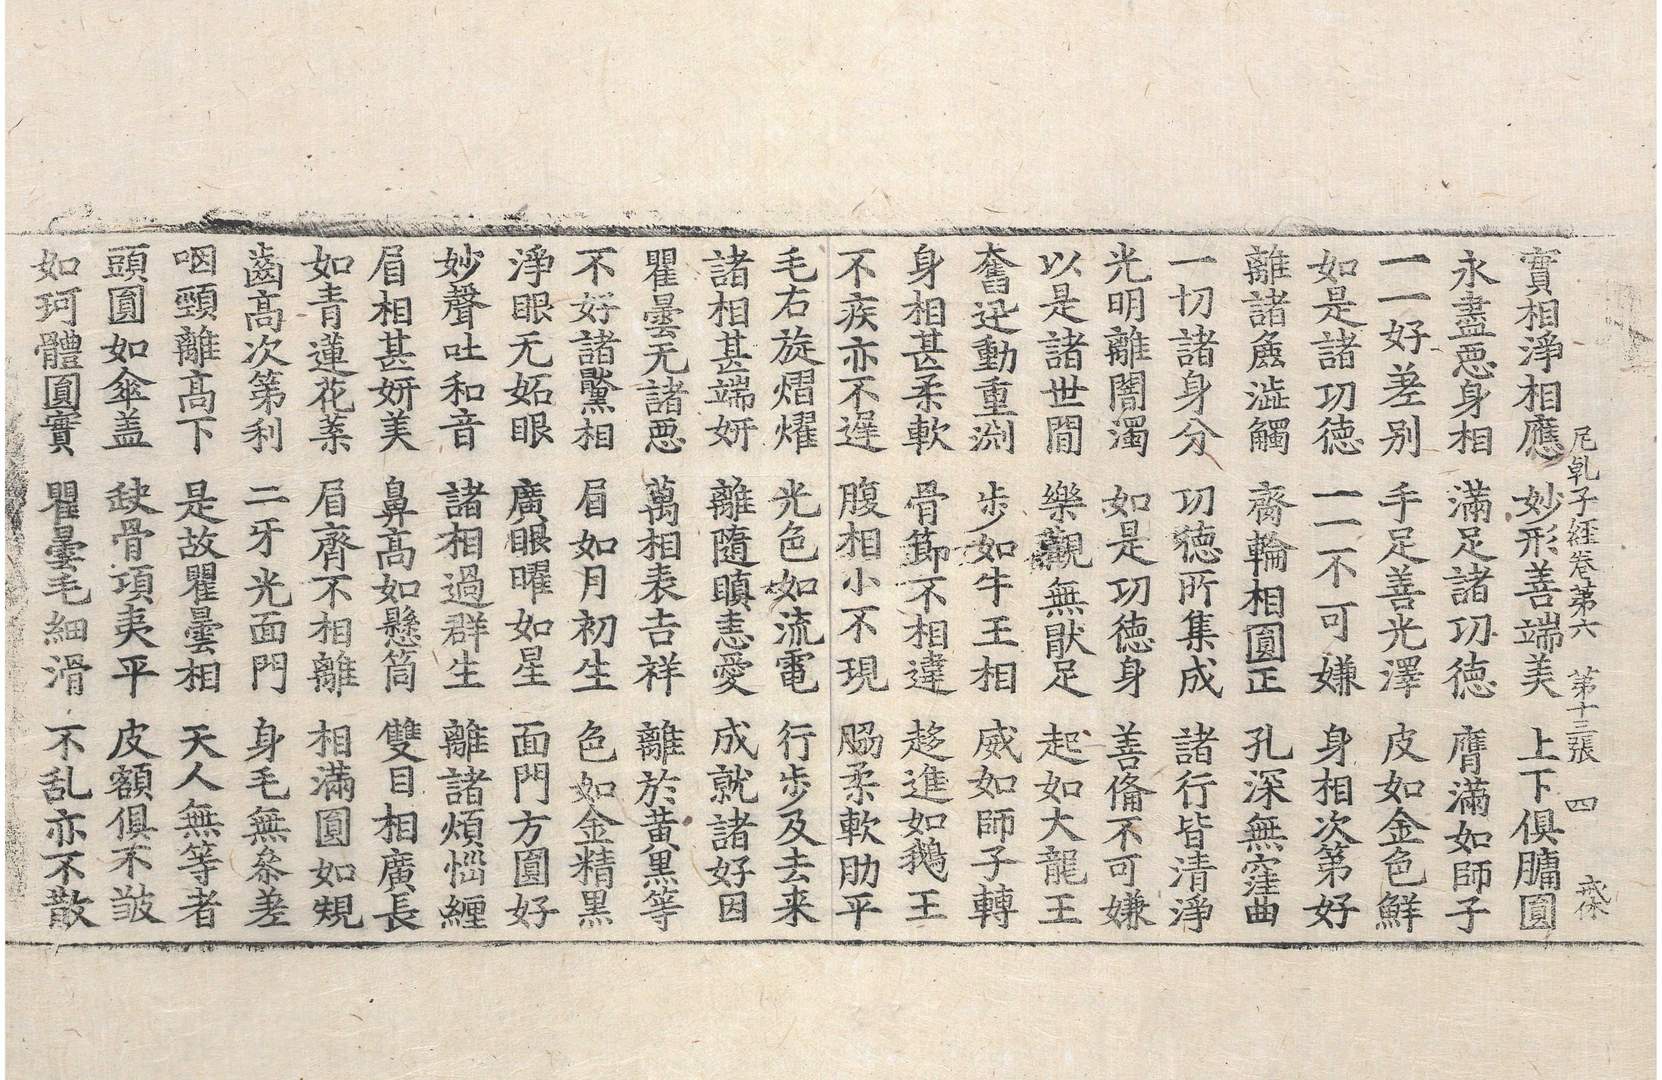 尼乹子経卷第六 第十三張 四 戒休
實相淨相應 妙形善端美 上下俱𦟛圓
永盡惡身相 滿足諸功德 膺滿如師子
一一好差別 手足善光澤 皮如金色鮮
如是諸功徳 一一不可嫌 身相次第好
離諸麁澁觸 齊輪相圓正 孔深無窪曲
一切諸身分 功徳所集成 諸行皆清淨
光明離闇濁 如是功徳身 善脩不可嫌
以是諸世間 樂觀無猒足 起如大龍王
奮迅動重渕 歩如牛王相 威如師子轉
身相甚柔軟 骨節不相違 趍進如鵝王
不疾亦不遅 腹相小不現 脇柔軟肋平
毛右旋熠燿 光色如流電 行歩及去来
諸相甚端妍 離隨瞋恚愛 成就諸好因
瞿曇无諸惡 萬相表吉祥 離於黃黒等
不好諸黶相 眉如月初生 色如金精黒
淨眼无妬眼 廣眼曜如星 面門方圓好
妙聲吐和音 諸相過群生 離諸煩惱纏
眉相甚妍美 鼻髙如懸筒 雙目相廣長
如青蓮花葉 眉齊不相離 相滿圓如規
齒髙次第利 二牙光面門 身毛無叅差
咽頸離髙下 是故瞿曇相 天人無等者
頭圓如傘盖 䀢骨項夷平 皮額俱不皺
如珂體圓實 瞿曇毛細滑 不乱亦不散